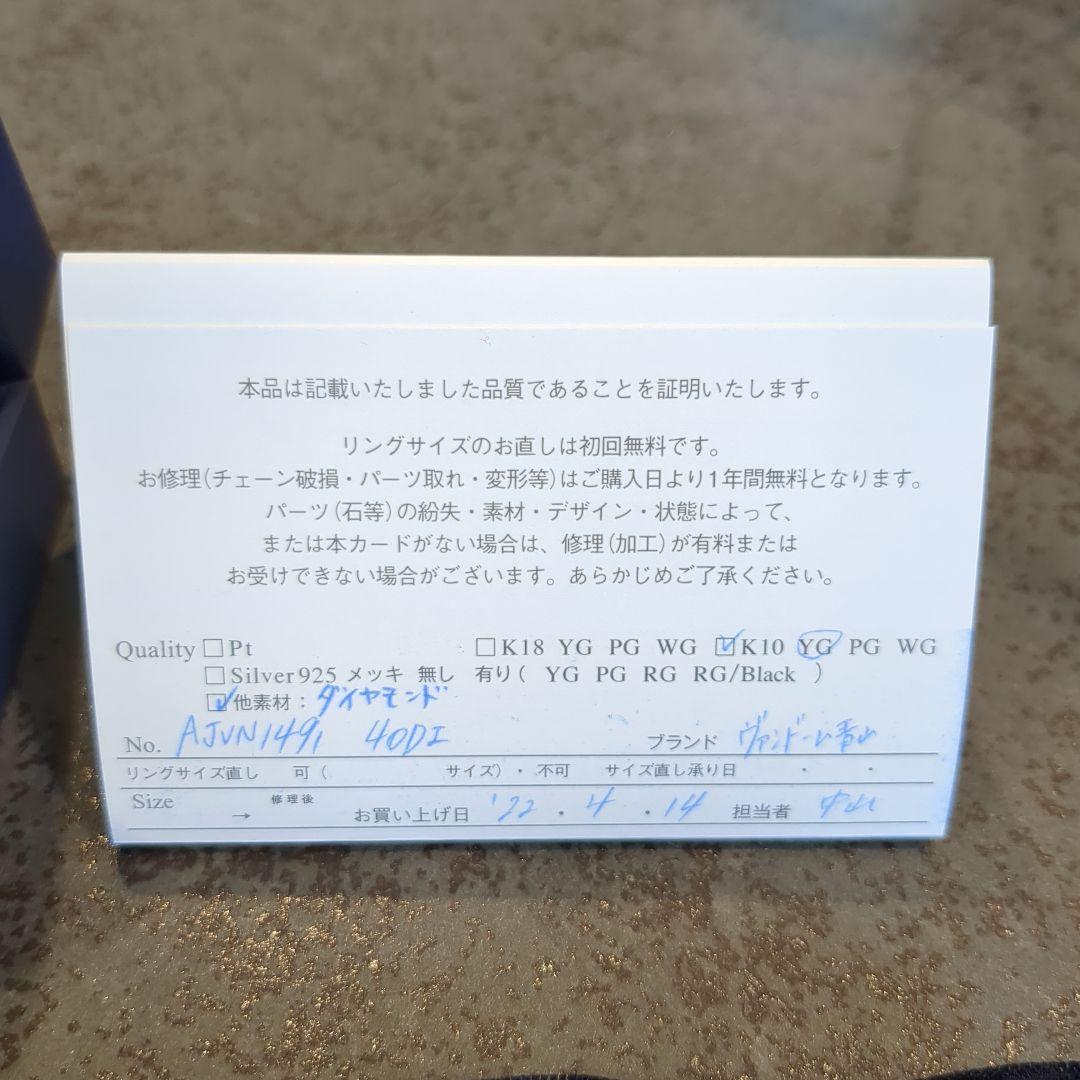 本品は記載いたしました品質であることを証明いたします。
リングサイズのお直しは初回無料です。
お修理(チェーン破損・パーツ取れ・変形等)はご購入日より1年間無料となります。
パーツ(石等)の紛失・素材・デザイン・状態によって、
または本カードがない場合は、修理(加工)が有料または
お受けできない場合がございます。あらかじめご了承ください。
Quality □Pt □K18 YG PG WG ☑K10 YG PG WG
□Silver925 メッキ 無し 有り( YG PG RG RG/Black )
☑他素材：ダイヤモンド
No. AJVN1491 40DI ブランド ヴァンドーム青山
リングサイズ直し 可( サイズ)・不可 サイズ直し承り日 ・ ・
Size → 修理後 お買い上げ日 '22・4・14 担当者 中山